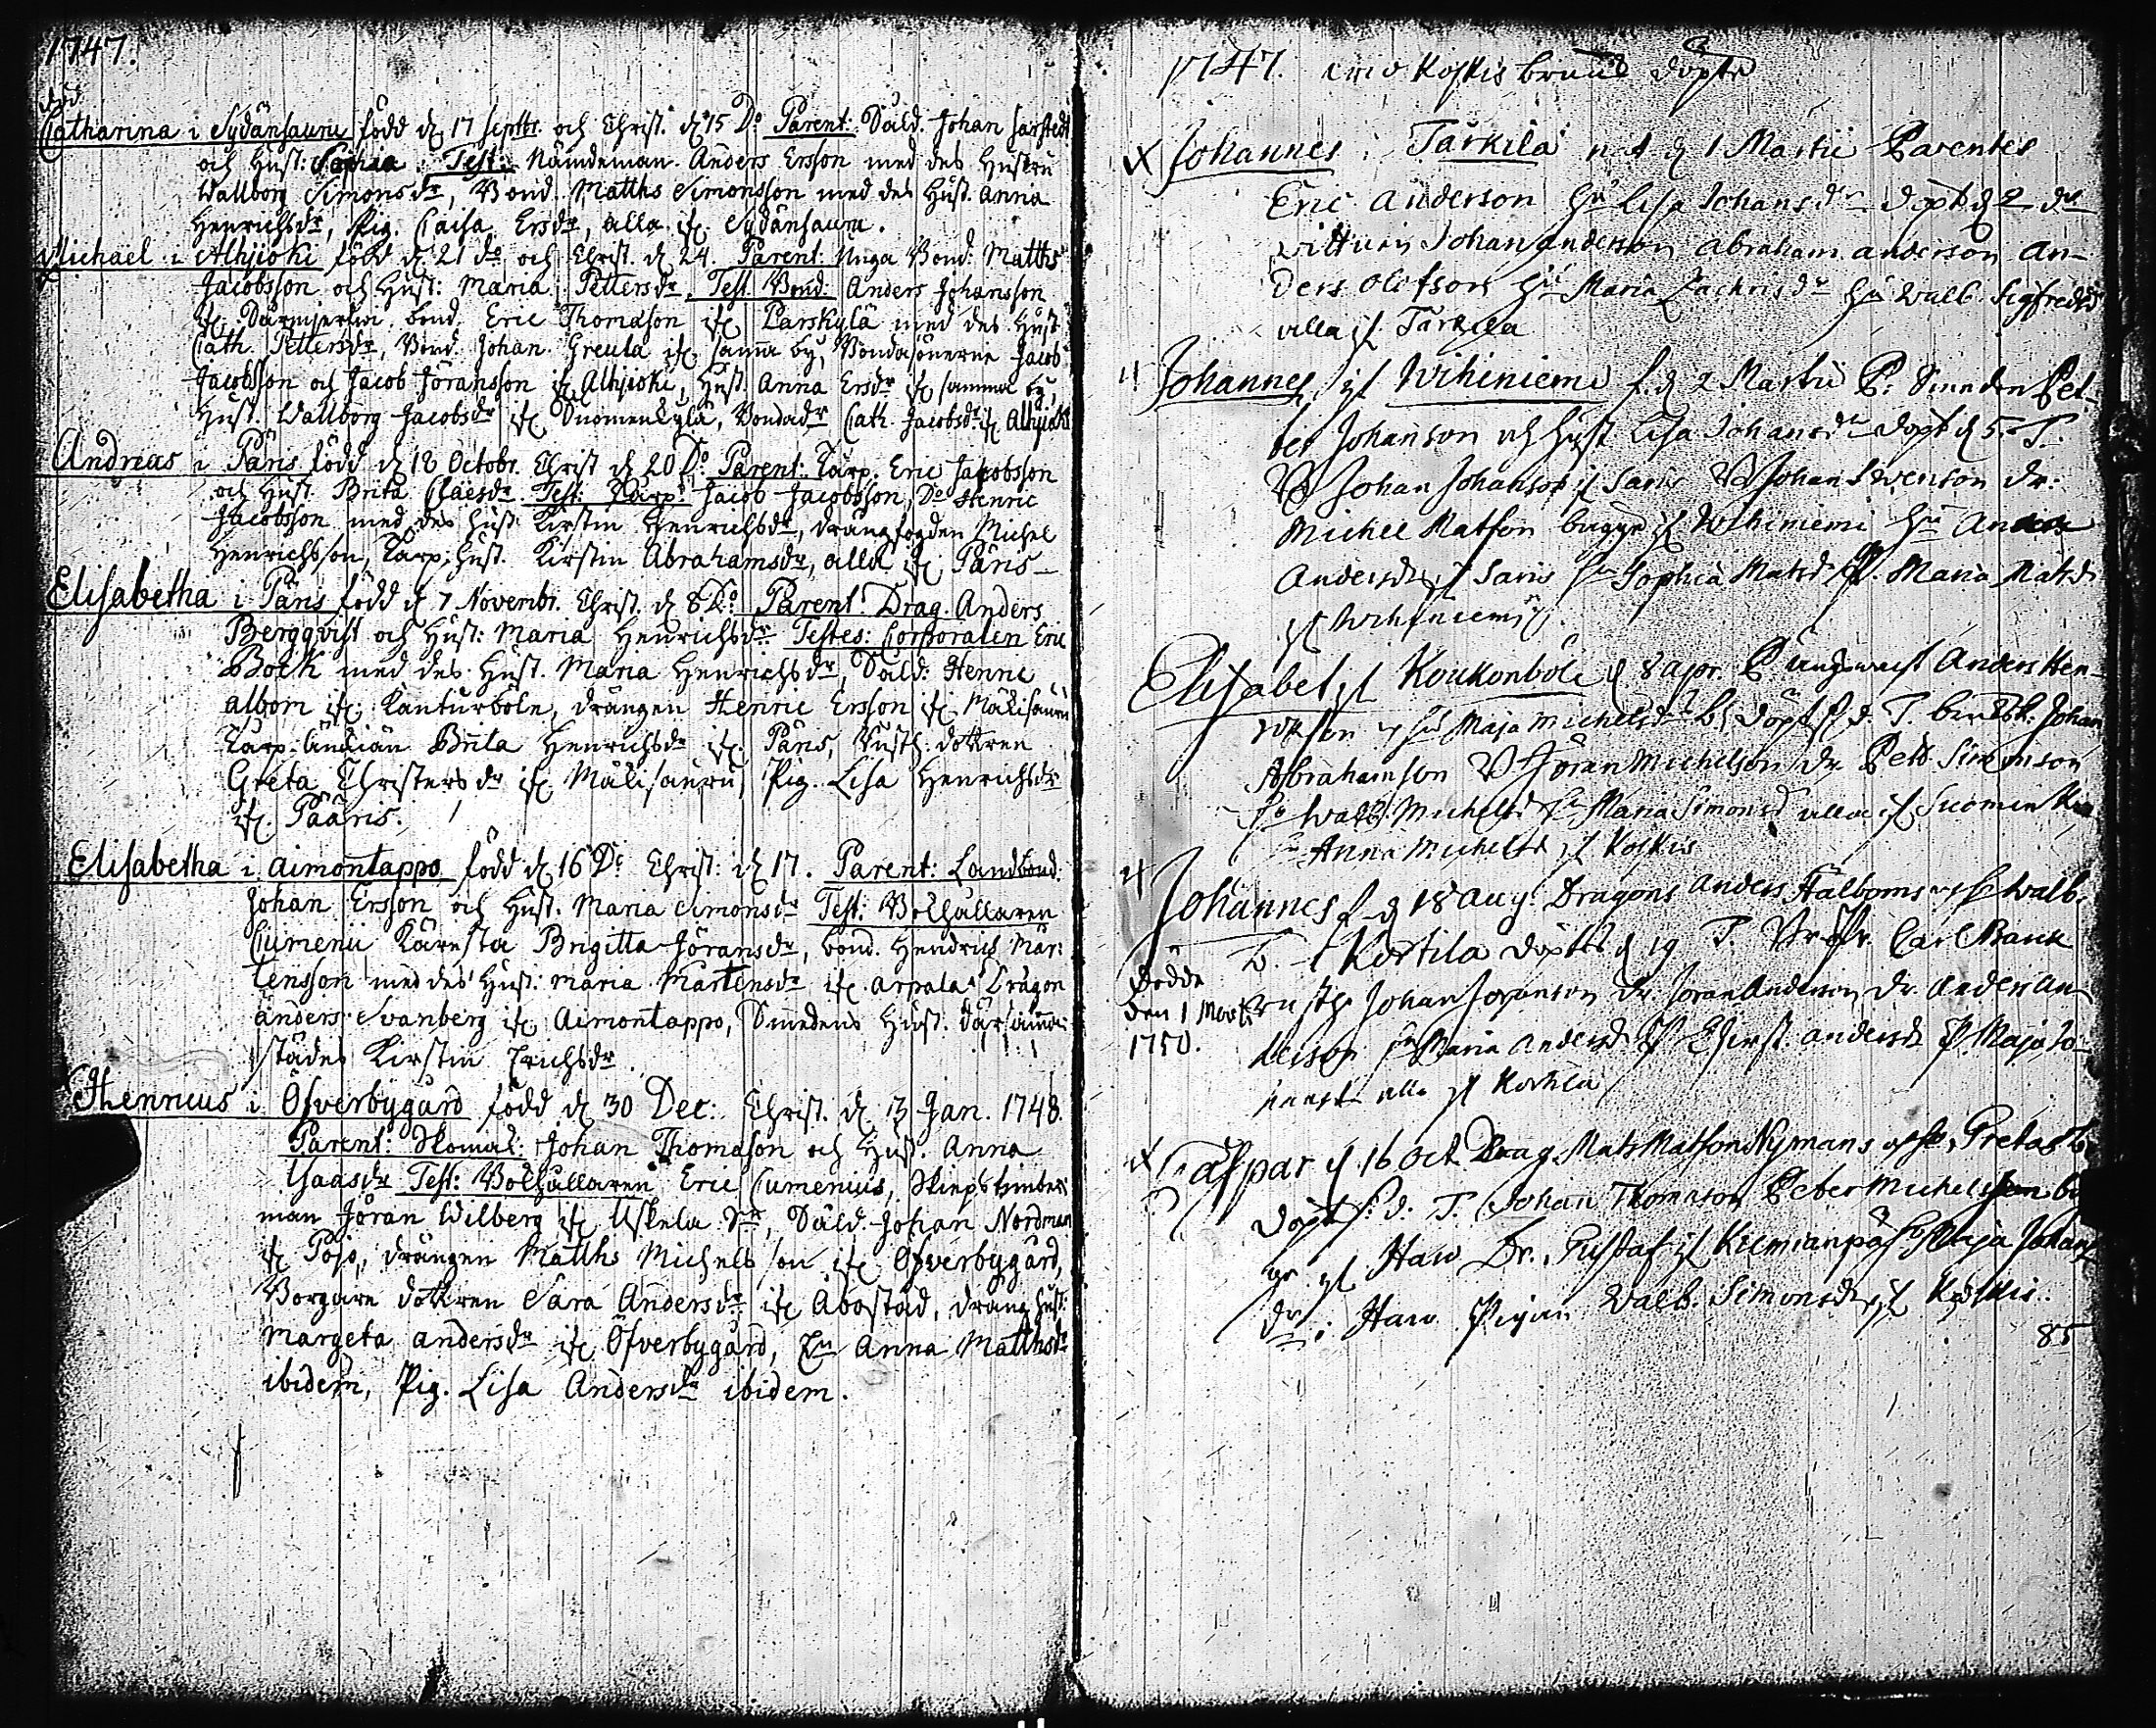 1747.
död
Catharina i Sydänsauru född d. 17 Septbr. och Christ. d. 15 Do Parent: Såld. Johan
och Hust: Sophia. Test: Nämdeman Anders Ersson med des Hustru
Wallborg Simonsdr, Bond. Matths Simonsson med des Hust. Anna
Henrichsdr, Pig. Caisa Ersdr, alla ifr. Sydänsauru.
Michaël i Alhjioki född d. 21 do och Christ. d. 24. Parent: Unga Bond: Matths
Jacobsson och Hust: Maria Pettersdr. Test. Bond: Anders Johansson
ifr. bond. Eric Thomasson ifr. Parskylä med des Hust
Cath. Pettersdr, Bond. Johan Greula ifr. samma by, Bondasönerne Jacob
Jacobsson och Jacob Jöransson ifr. Alhjioki, Hust. Anna Ersdr ifr samma by,
Hust. Wallborg Jacobsdr ifr. Suomenkylä, Bondadr Cath. Jacobsdr ifr. Alhjioki
Andreas i Päris född d. 18 Octobr. Christ d. 20 Do. Parent: Tarp. Eric Jacobsson
och Hust. Brita Claesdr. Test: Tarp: Jacob Jacobsson, Do Henric
Jacobsson med des Hust: Kirstin Henrichsdr, drängfogden Michel
Henrichsson, Tarp: Hust. Kirstin Abrahamsdr, alla ifr. Päris
Elisabetha i Päris född d. 7 Novembr. Christ. d. 8 Do. Parent: Drag. Anders
Bergqvist och Hust: Maria Henrichsdr Testes: Corporalen Eric
Bock med des Hust. Maria Henrichsdr, Såld: Henric
albom ifr. Kanturböle, drängen Henric Ersson ifr. Mälisauru
Tarp: Brita Henrichsdr ifr. Päris, dottren
Greta Christersdr ifr. Mälisauru, Pig. Lisa Henrichsdr
ifr. Pääris.
Elisabetha i Aimontappo född d. 16 Do Christ: d. 17. Parent: Landbond:
Johan Ersson och Hust. Maria Simonsdr Test: Bokhållaren
Cumenii Käresta Brigitta Jöransdr, bond. Hendrich Mår:
tensson med des Hust: Maria Mårtensdr ifr. Arpala Dragon
Anders Svanberg ifr Aimontappo, Smedens Hust. där samma
städes Kirstin Erichsdr.
Henricus i Öfverbygård född d. 30 Dec: Christ. d. 3 Jan. 1748.
Parent: Skomak: Johan Thomasson och Hust. Anna
Claasdr Test: Bokhållaren Eric Cumenius, Skieps timber
man Jöran Wilberg ifr. Uskela Sn, Såld. Johan Nordman
ifr Pojo, drängen Matths Michelsson ifr Öfverbygård,
Borgare dottren Sara Andersdr ifr Åbostad, dräng Hust:
Margeta Andersdr ifr Öfverbygård, Anna Matthsdr
ibidem, Pig. Lisa Andersdr ibidem.
1747. Koskis döpte
Johannes Tarkila n d 1 Martii Parentes
Eric Anderson Hu Lisa Johansdr döpt d 2 do
Johan anderson Abraham anderson An-
ders Olofson Hu Maria Zachrisdr Hu Walb. Sigfredsd
alla if. Tarkila
4 Johannes if Wihiniemi f. d 2 Martii P: Smeden Pet-
ter Johanson och Hust. Lisa Johansdr döpt d 5. T.
Johan Johanson if Saris Johan Swenson Dr:
Michel Matson if Wihiniemi
Andersdr if Saris Sophia Matsd P. Maria Matsd
if Wihiniemi
Elisabet if Koukonböle d 8 apr. P. Anders Hen-
Maja Michelsdr döpt s. d. T. Johan
Abrahamson Jöran Michelson Dr. Pett. Simonson
Walb. Michelsd Maria Simonsd alla if Suomenky
Anna Michelsd if Koskis
4 Johannes f d 18 Aug. Dragons Anders Hälboms Walb.
Kortila döpt d 19 T. Carl
Dödde
den 1 Mart Johan Joranson Dr. Joran Anderson Dr. Anders An-
1750. derson Maria Andersd Andersd P. Maja Jo-
alla if Kortila
Caspar d 16 Oct Drag. Mats Matson Nymans Gretas
döpt s. d. T. Johan Thomason Peter Michelson
if Haro Dr. Gustaf if Maja Johans
dr i Haro Pigan Walb. Simonsd if Koskis.
85